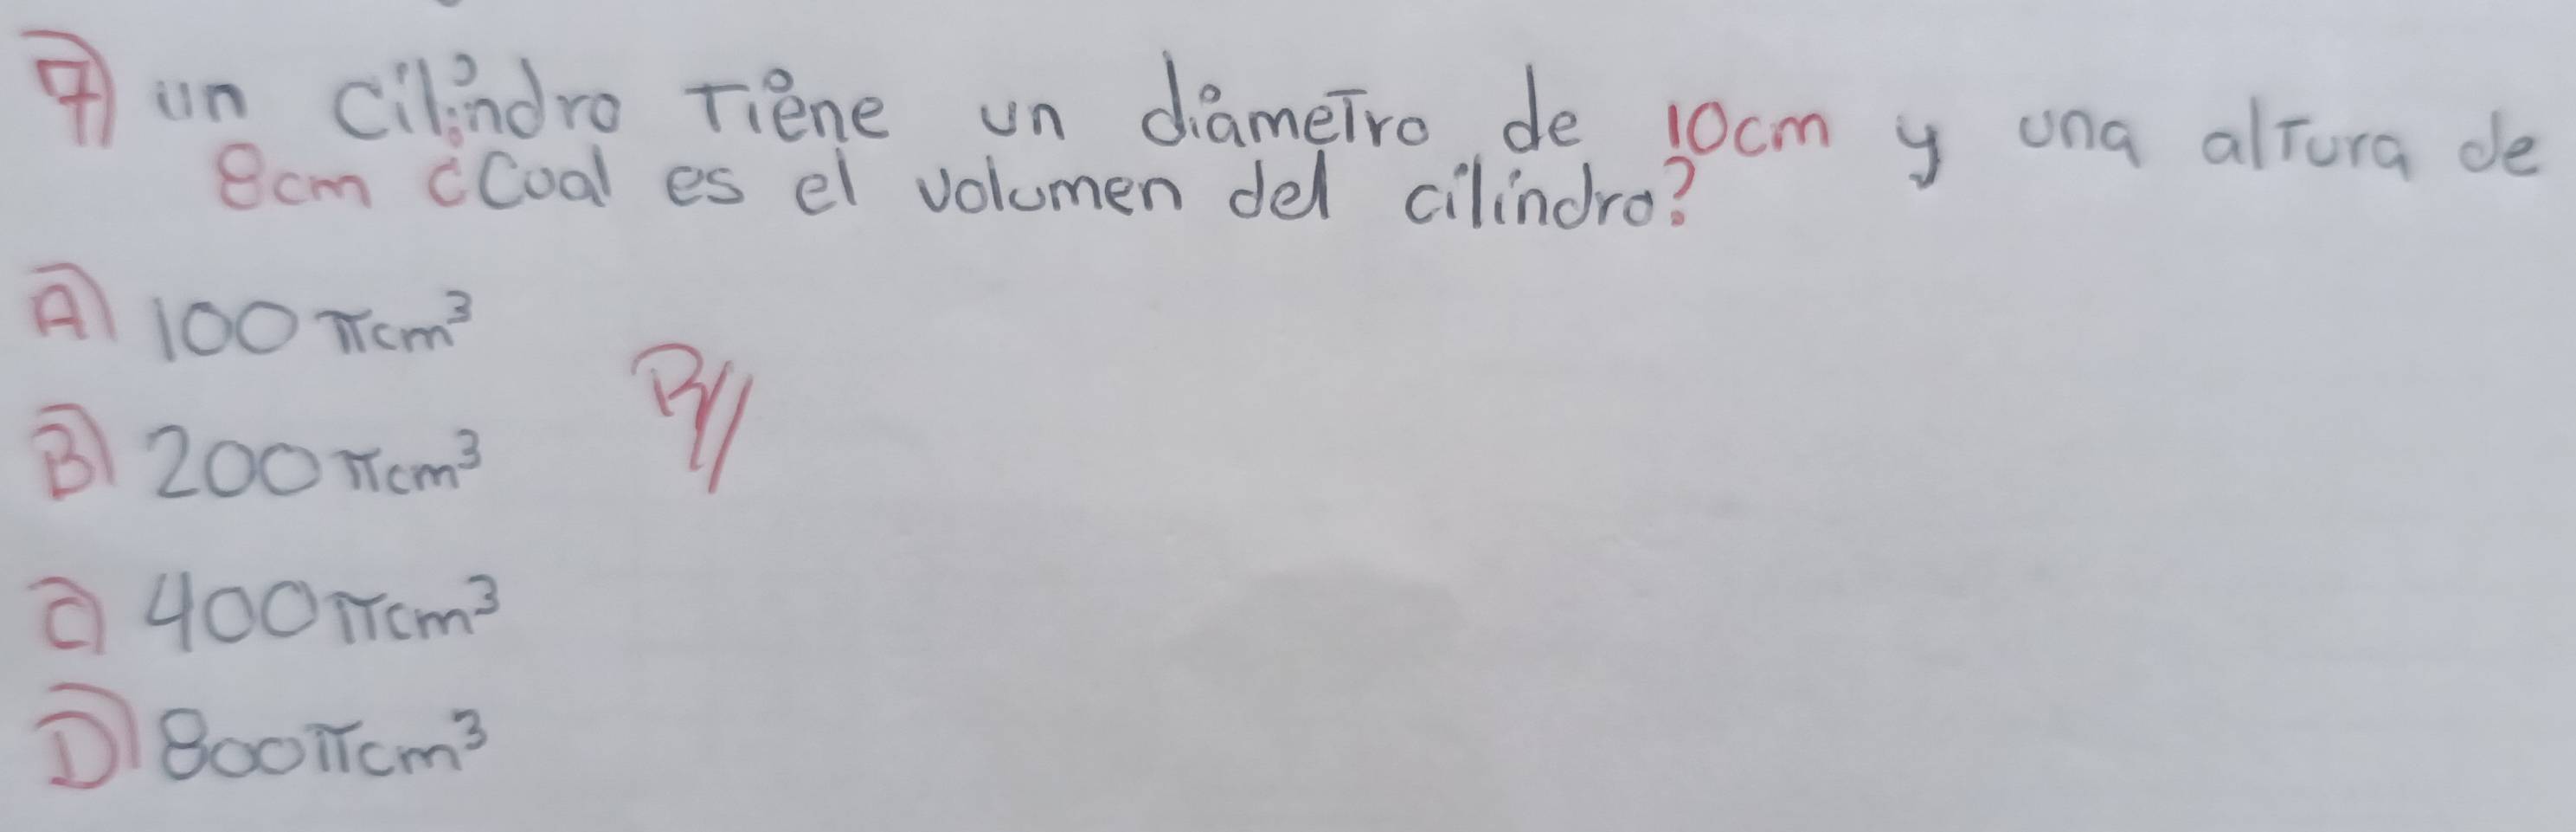 7) un cilindro Tiene un diámeTro de 10cm y una alTura de
8cm ¿Cual es el volumen del cilindro?
A) 100 πcm³
R//
B) 200 πcm³
C) 400 πcm³
D) 800 πcm³